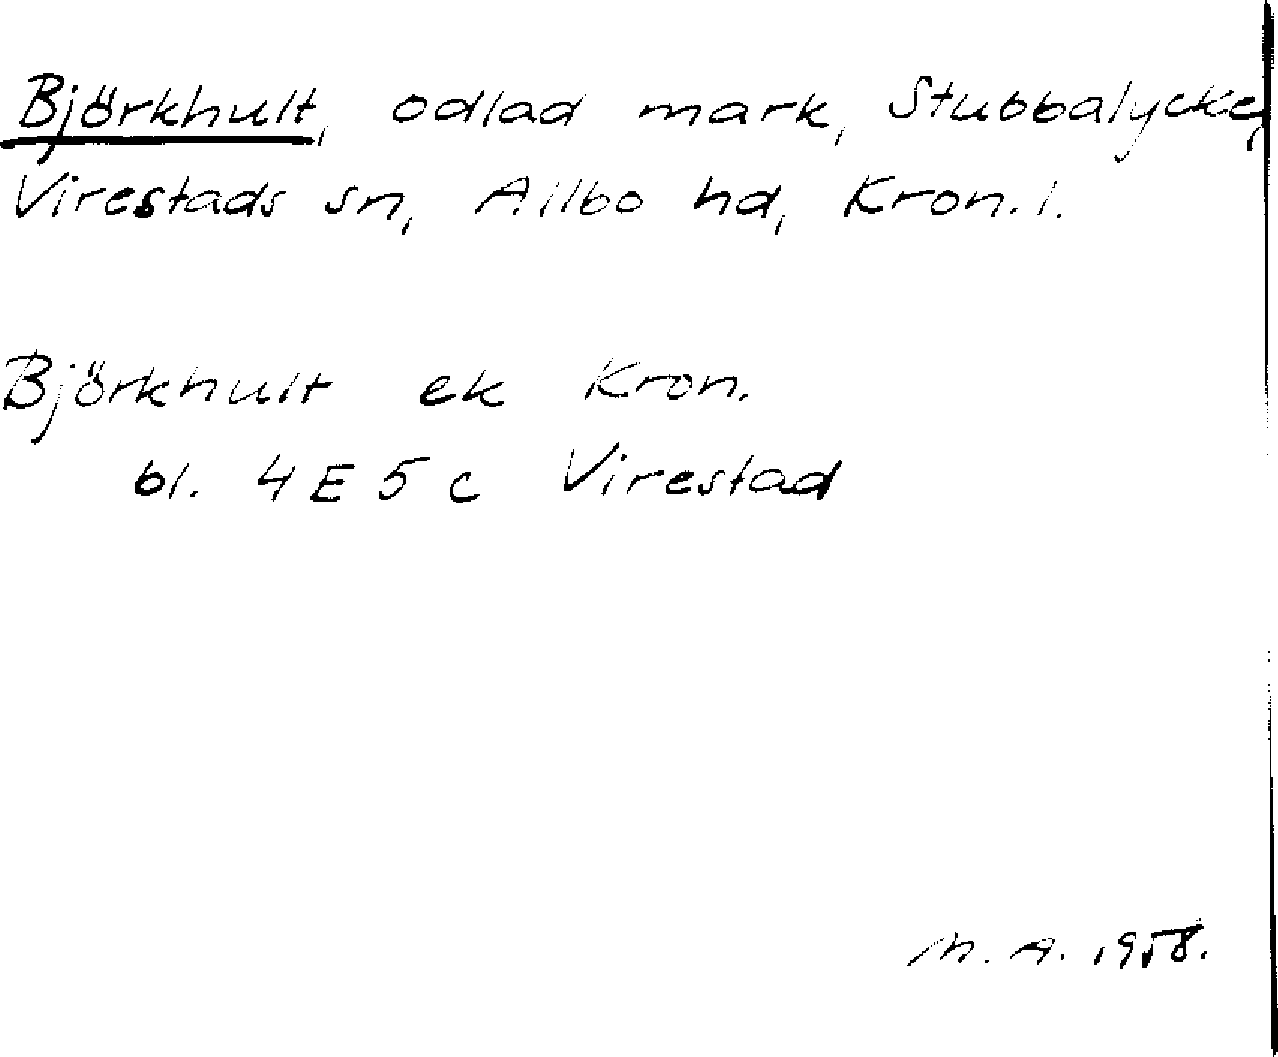 Björkhult, odlad mark, Stubbalycke,
Virestads sn, Allbo hd, Kron. l.
Björkhult ek Kron.
bl. 4 E 5 c Virestad
M. A. 1958.